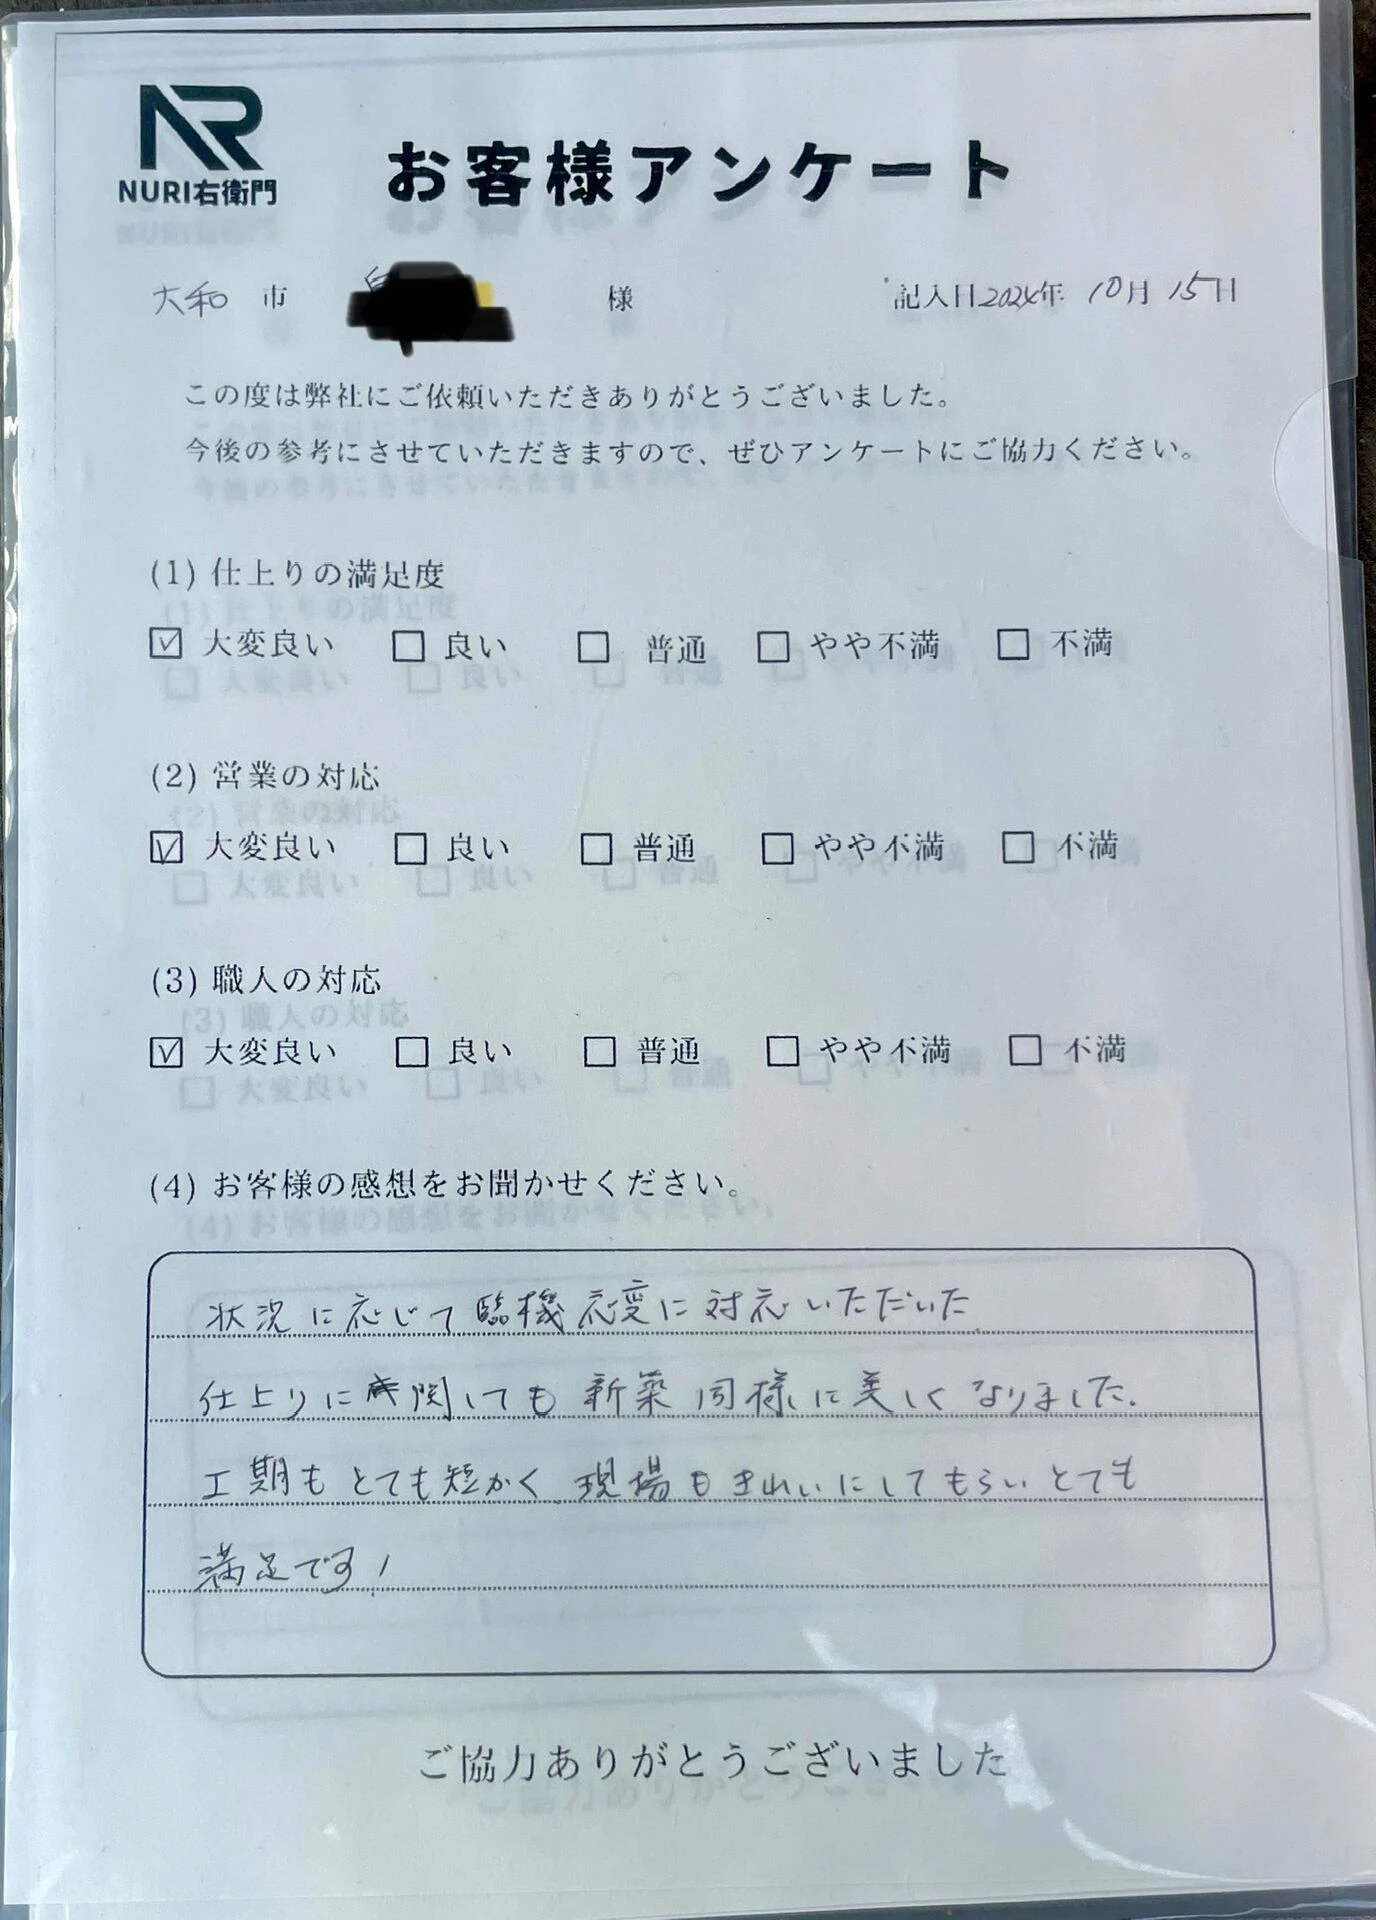 NURI右衛門
お客様アンケート
大和 市 様 記入日2024年 10月 15日
この度は弊社にご依頼いただきありがとうございました。
今後の参考にさせていただきますので、ぜひアンケートにご協力ください。
(1) 仕上りの満足度
☑ 大変良い ☐ 良い ☐ 普通 ☐ やや不満 ☐ 不満
(2) 営業の対応
☑ 大変良い ☐ 良い ☐ 普通 ☐ やや不満 ☐ 不満
(3) 職人の対応
☑ 大変良い ☐ 良い ☐ 普通 ☐ やや不満 ☐ 不満
(4) お客様の感想をお聞かせください。
状況に応じて臨機応変に対応いただいた
仕上りに関しても新築同様に美しくなりました.
工期もとても短かく 現場もきれいにしてもらいとても
満足です!
ご協力ありがとうございました